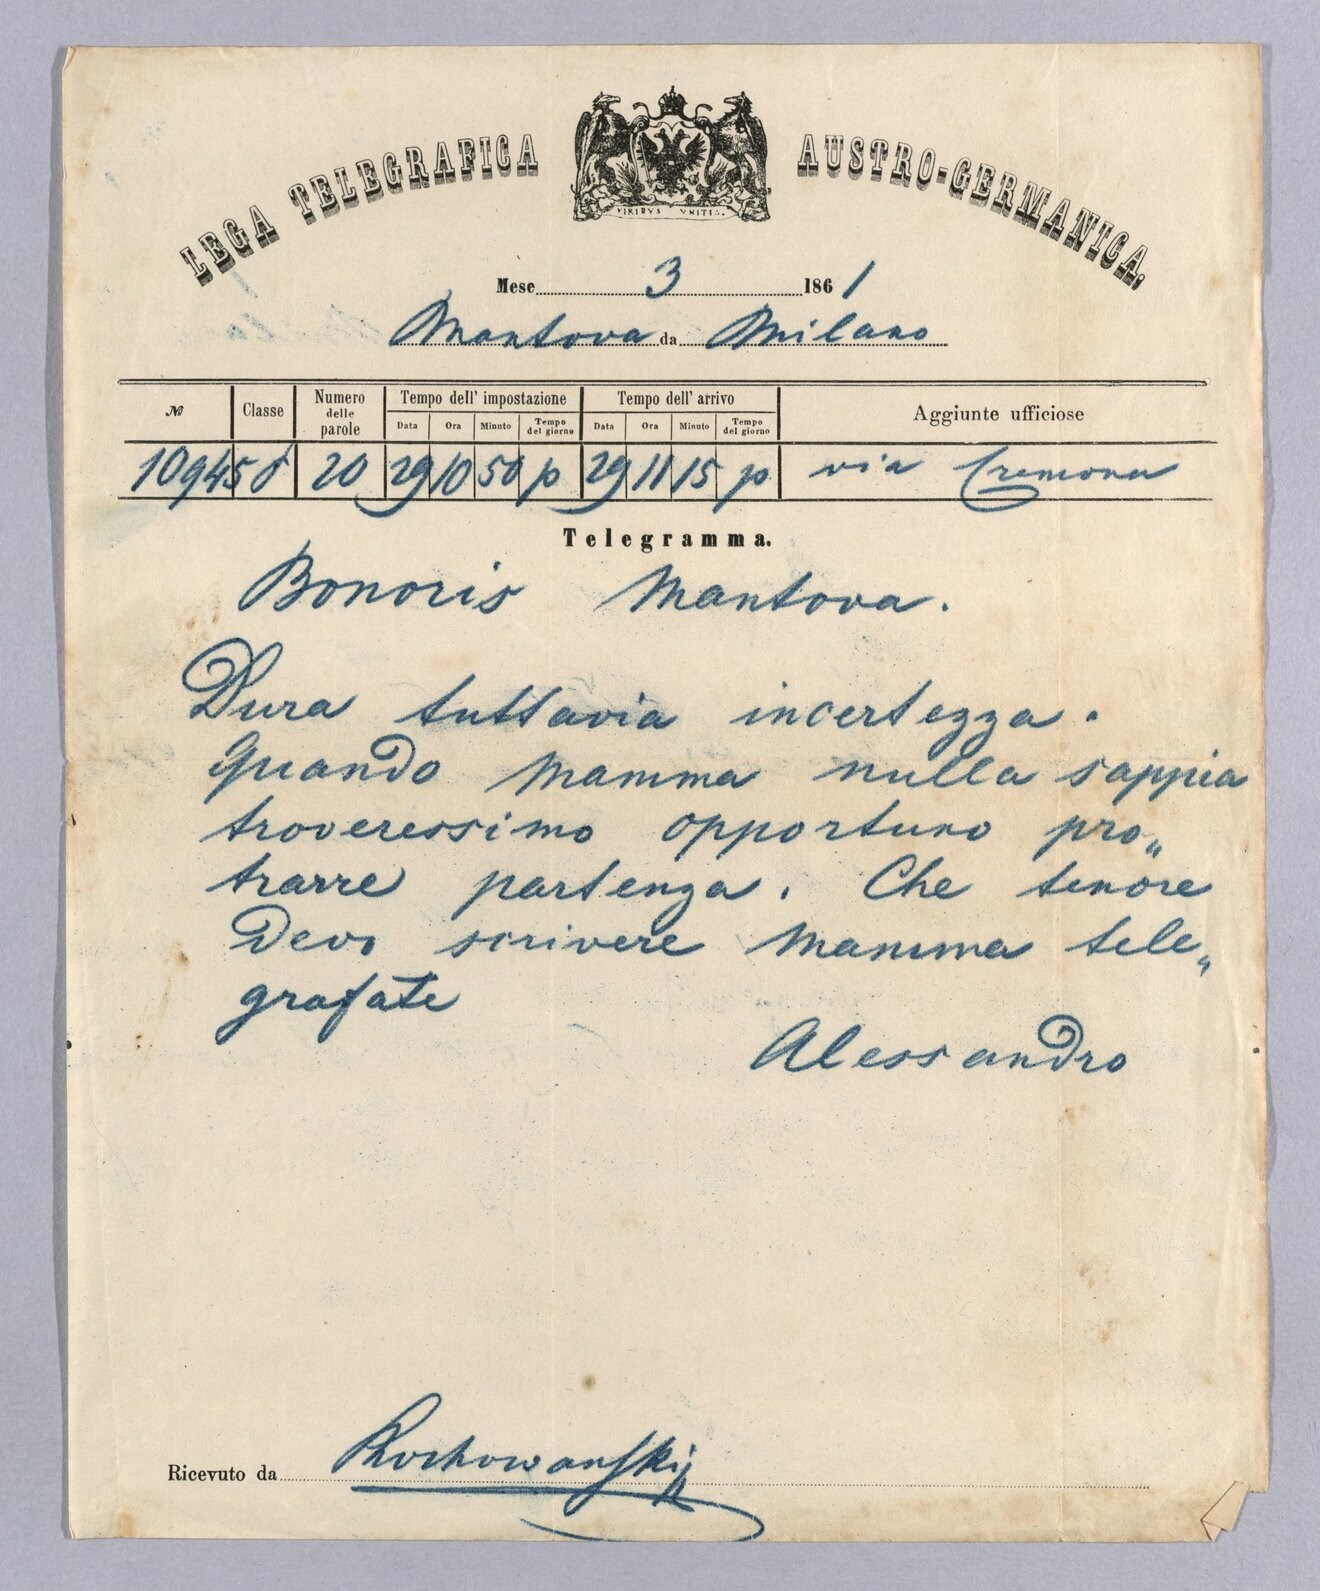 LEGA TELEGRAFICA AUSTRO-GERMANICA.
VIRIBVS VNITIS.
Mese 3 1861
Mantova da Milano
№ Classe Numero delle parole Tempo dell' impostazione Tempo dell' arrivo Aggiunte ufficiose
Data Ora Minuto Tempo del giorno Data Ora Minuto Tempo del giorno
10945 20 29 10 50 p 29 11 15 p via Cremona
Telegramma.
Bonoris Mantova.
Dura tuttavia incertezza.
Quando Mamma nulla sappia
troveressimo opportuno pro„
trarre partenza. Che tenore
Devo scrivere Mamma tele„
grafate
Alessandro
Ricevuto da